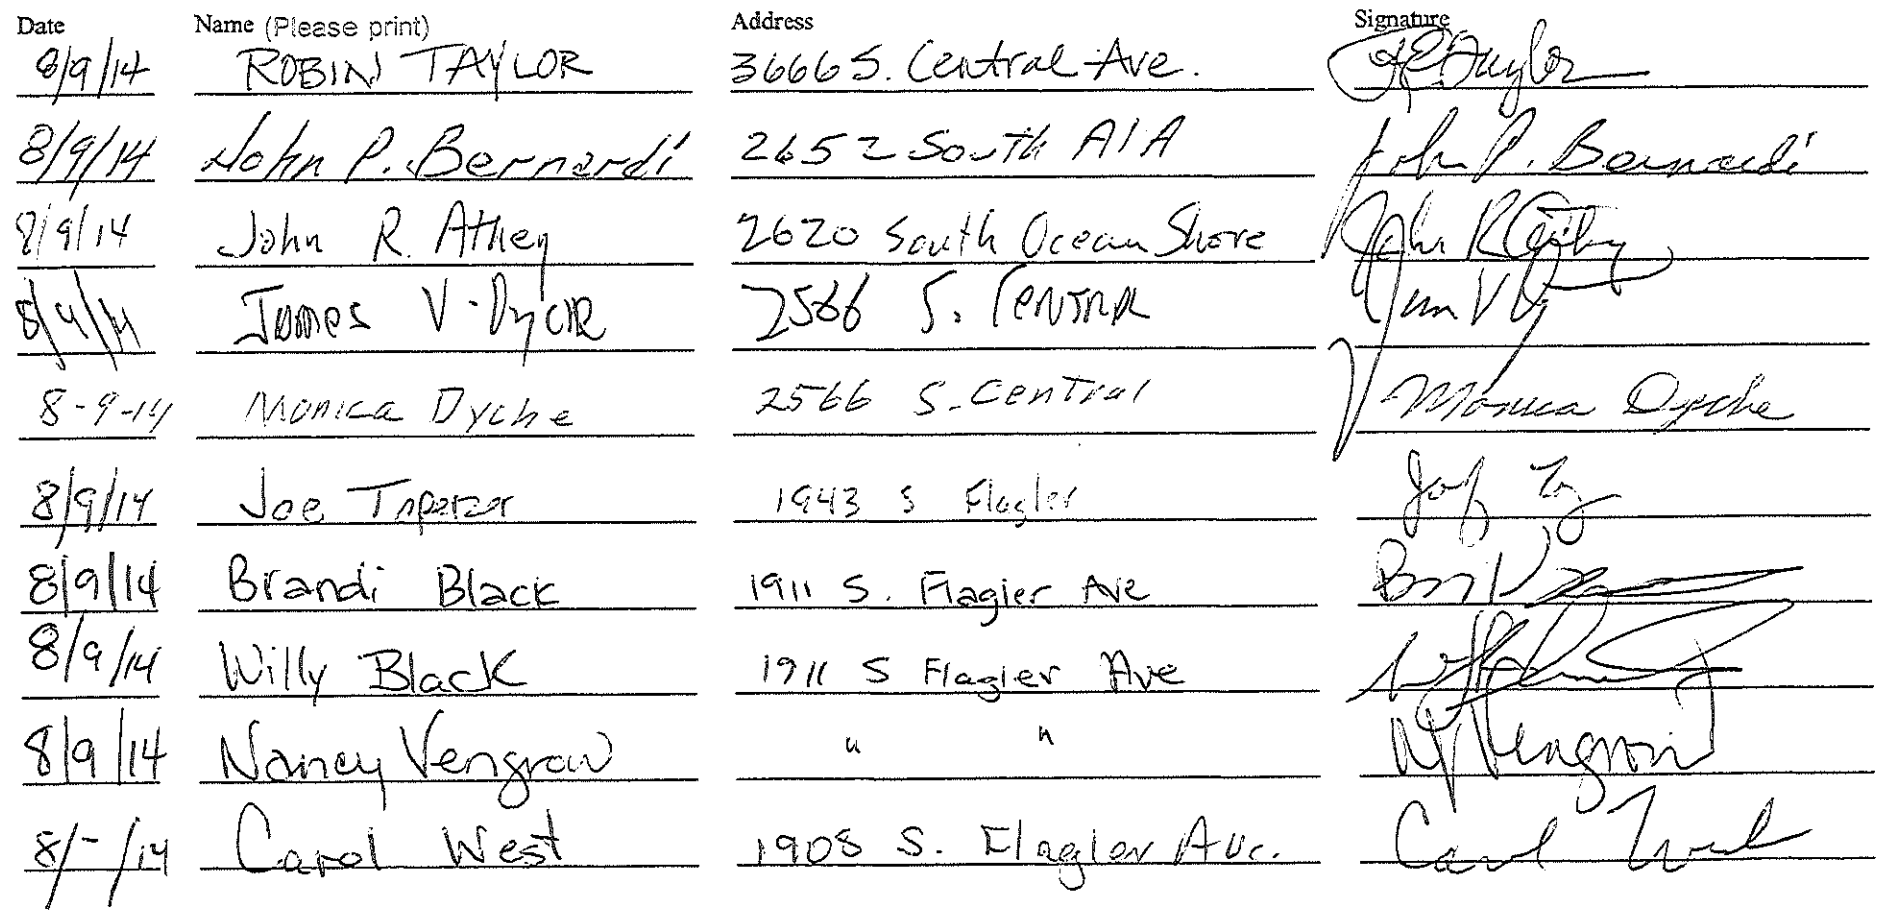 Date Name (Please print) Address Signature
8/9/14 ROBIN TAYLOR 3666 S. Central Ave. R Taylor
8/9/14 John P. Bernardi 2652 South A1A John P. Bernardi
8/9/14 John R. Athey 2620 South Ocean Shore John R Athey
8/9/14 James V. Dyche 2566 S. Central
8-9-14 Monica Dyche 2566 S. Central Monica Dyche
8/9/14 Joe 1943 S Flagler
8/9/14 Brandi Black 1911 S. Flagler Ave
8/9/14 Willy Black 1911 S Flagler Ave
8/9/14 Nancy Vengrow " " N Vengrow
8/-/14 Carol West 1908 S. Flagler Ave. Carol West